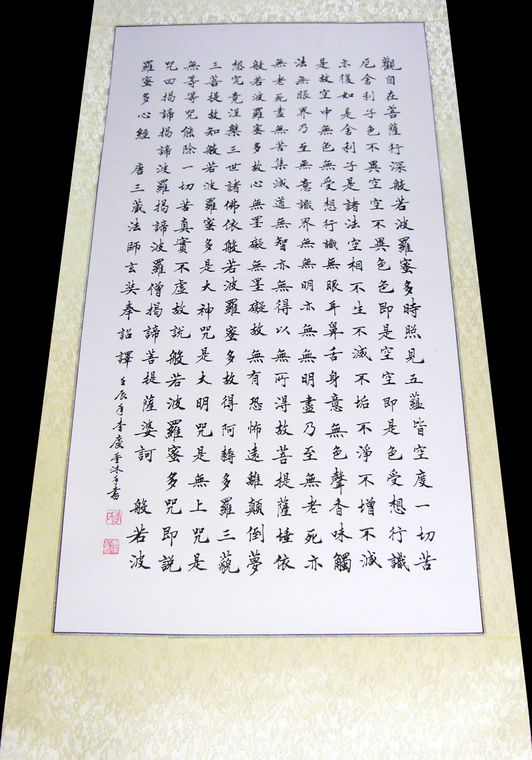 觀自在菩薩行深般若波羅蜜多時照見五蘊皆空度一切苦
厄舍利子色不異空空不異色色即是空空即是色受想行識
亦復如是舍利子是諸法空相不生不滅不垢不淨不增不減
是故空中無色無受想行識無眼耳鼻舌身意無色聲香味觸
法無眼界乃至無意識界無無明亦無無明盡乃至無老死亦
無老死盡無苦集滅道無智亦無得以無所得故菩提薩埵依
般若波羅蜜多故心無罣礙無罣礙故無有恐怖遠離顛倒夢
想究竟涅槃三世諸佛依般若波羅蜜多故得阿耨多羅三藐
三菩提故知般若波羅蜜多是大神咒是大明咒是無上咒是
無等等咒能除一切苦真實不虛故說般若波羅蜜多咒即說
咒曰揭諦揭諦波羅揭諦波羅僧揭諦菩提薩婆訶 般若波
羅蜜多心經 唐三藏法師玄奘奉詔譯 壬辰年李 沐手書